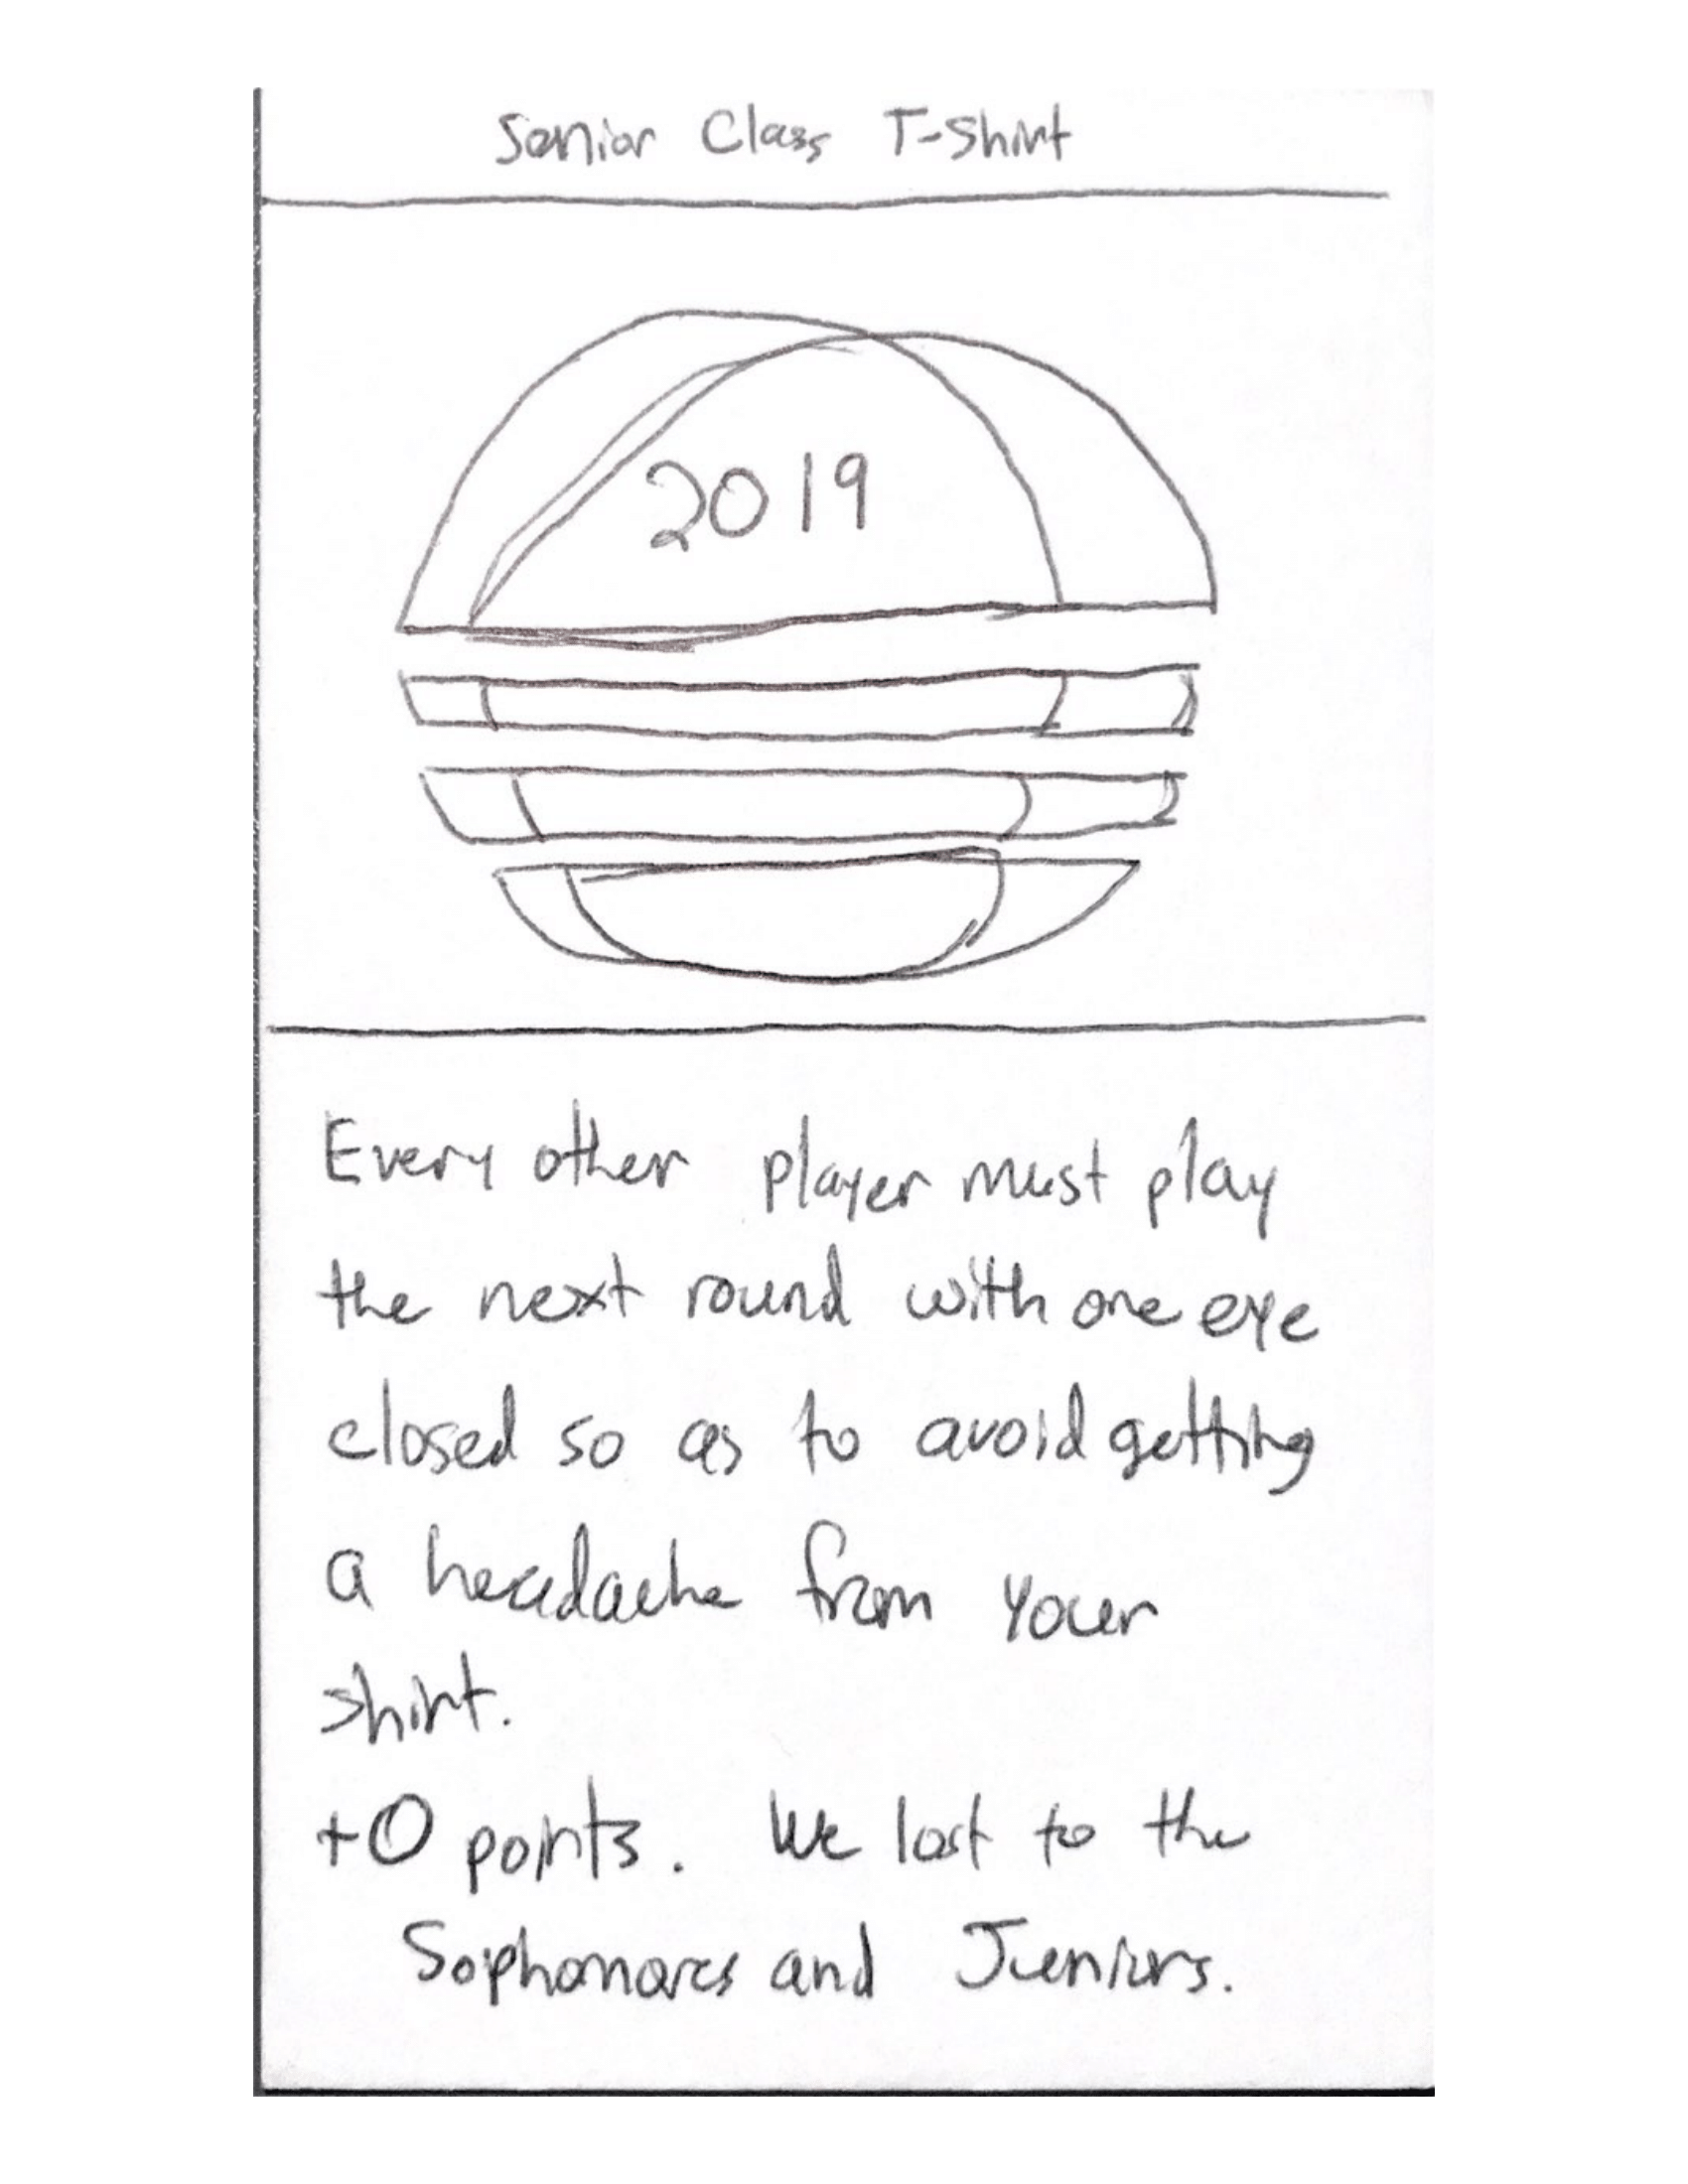 Senior Class T-Shirt
2019
Every other player must play
the next round with one eye
closed so as to avoid getting
a headache from your
shirt.
+0 points. We lost to the
Sophomores and Juniors.